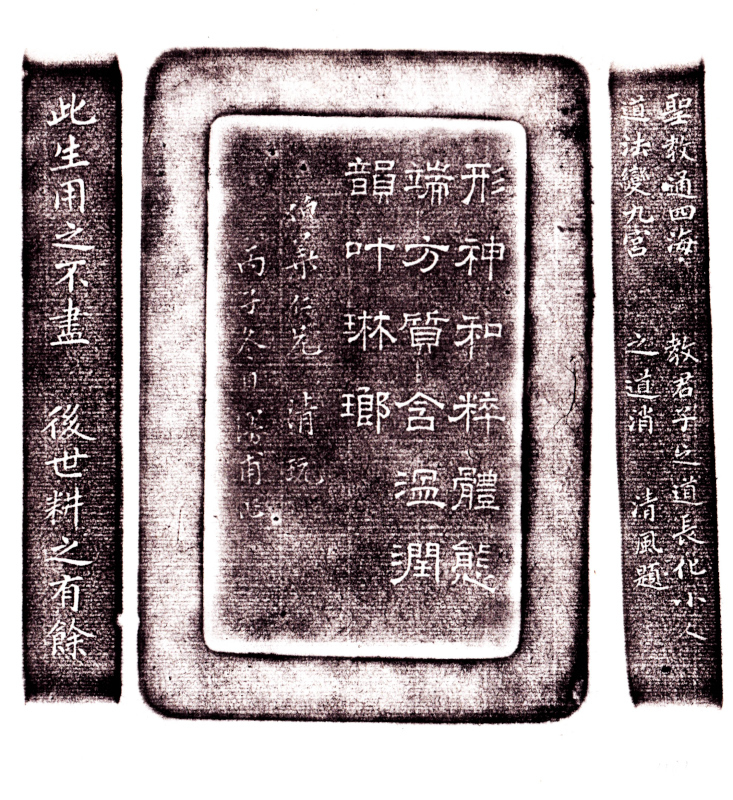 聖教通四海 教君子之道長化小人
道法變九宮 之道消 清風題
形神和粹體態
端方質含溫潤
韻叶琳瑯
仁兄 清玩
丙子冬日 甫
此生用之不盡 後世耕之有餘